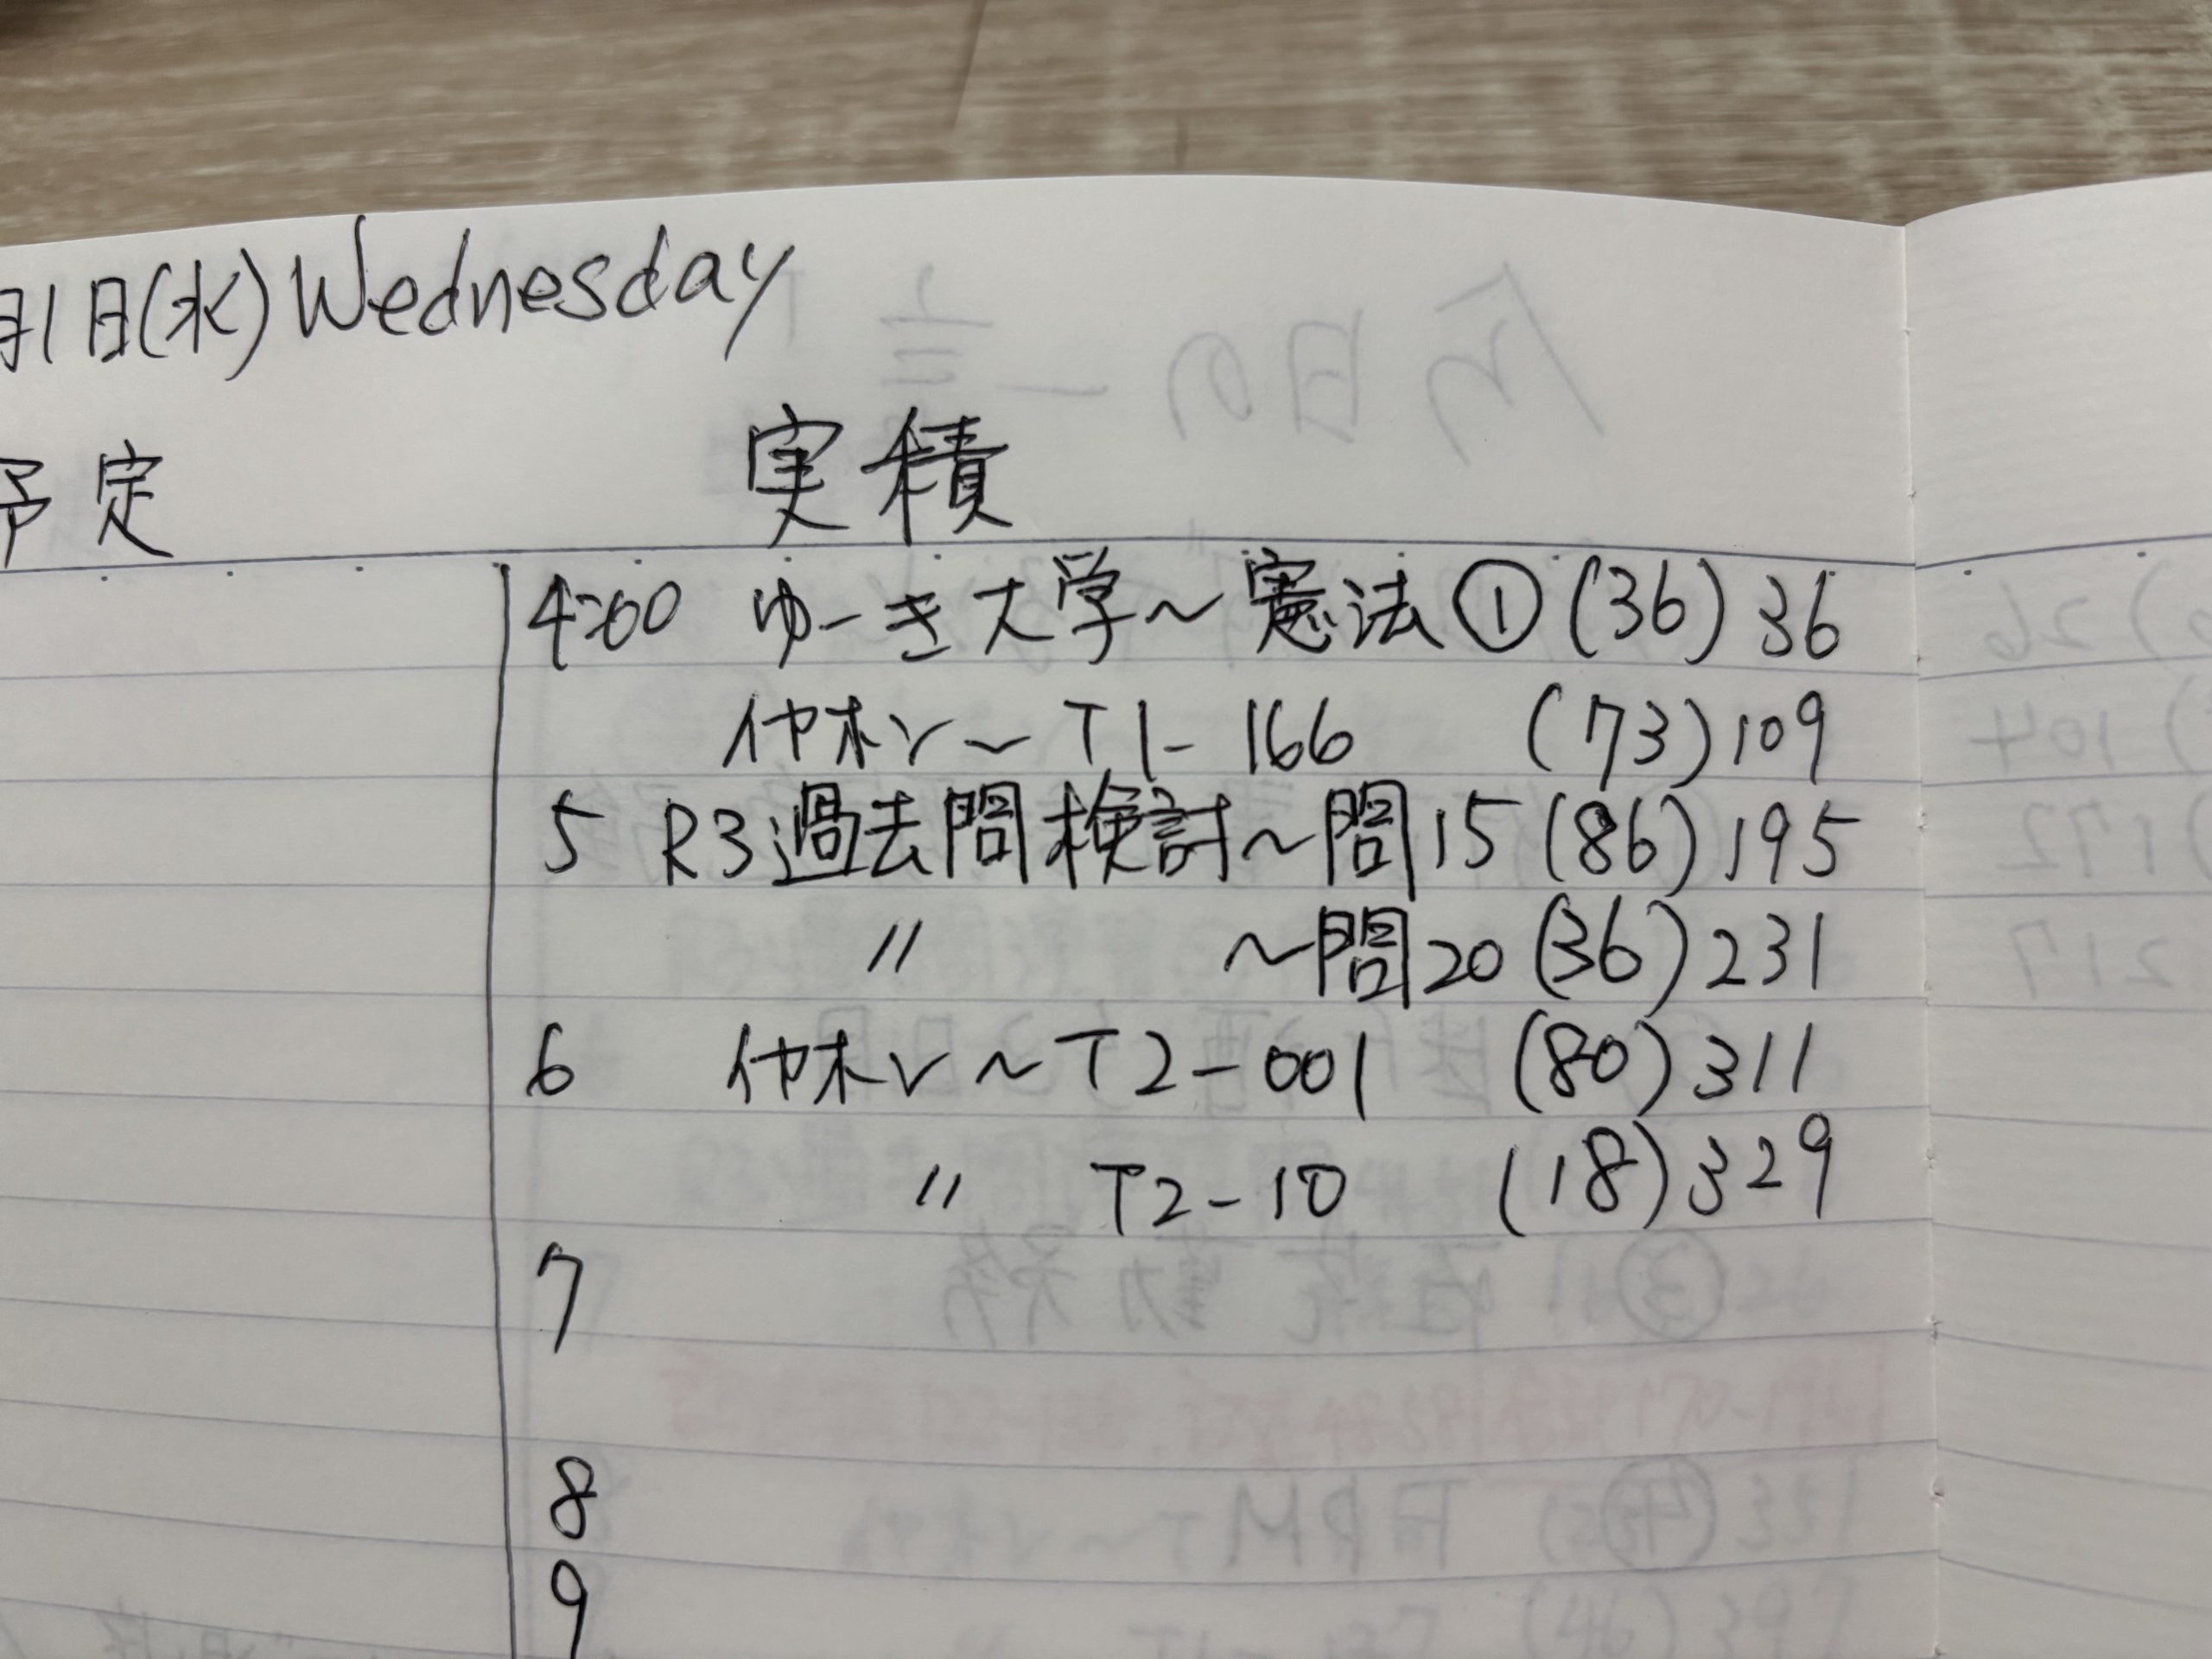 月1日(水) Wednesday
予定 実積
4:00 ゆーき大学～憲法①(36) 36
イヤホン～T1-166 (73) 109
5 R3過去問検討～問15 (86) 195
〃 ～問20 (36) 231
6 イヤホン～T2-001 (80) 311
〃 T2-10 (18) 329
7
8
9